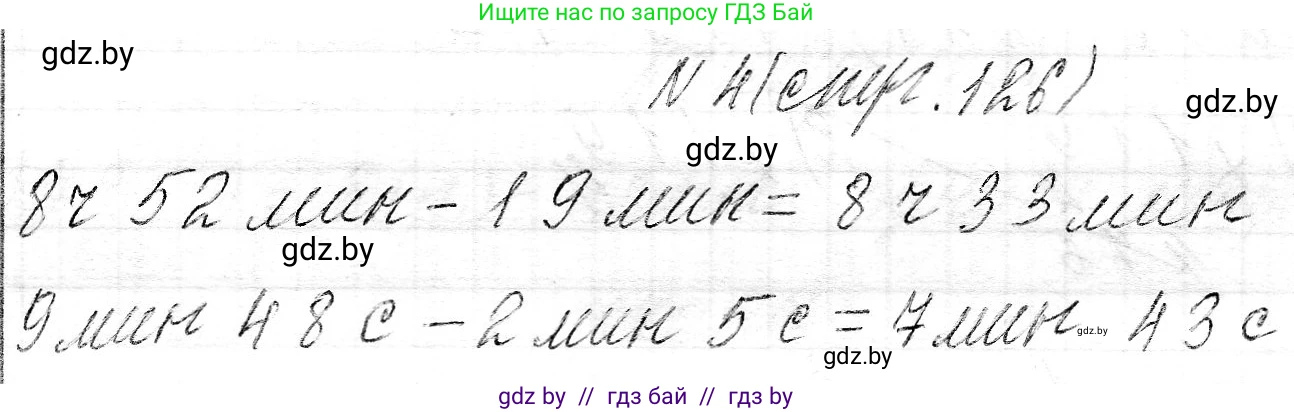 Ищите нас по запросу ГДЗ Бай
gdz.by
N 4 (стр. 126)
gdz.by
gdz.by
8 ч 52 мин - 19 мин = 8 ч 33 мин
gdz.by
9 мин 48 с - 2 мин 5 с = 7 мин 43 с
gdz.by
gdz.by
gdz by // гдз бай // гдз by